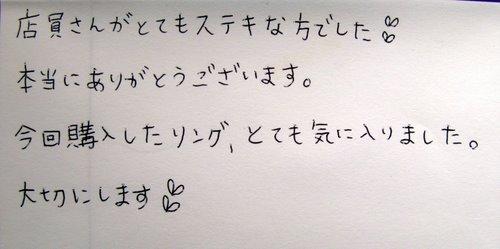 店員さんがとてもステキな方でした
本当にありがとうございます。
今回購入したリング、とても気に入りました。
大切にします